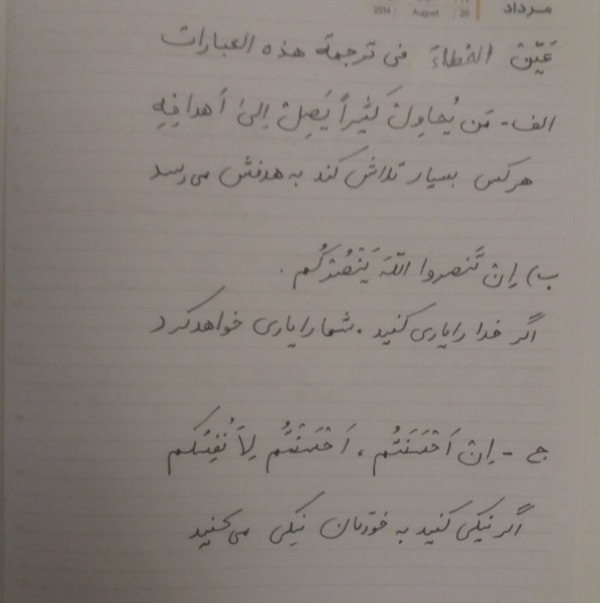 مرداد
2014 August 20
عَيِّن الخطاءَ فی ترجمة هذه العبارات
الف - مَن یُحاوِلْ كثیراً یَصِلْ إلیٰ أهدافِهِ
هرکس بسیار تلاش کند به هدفش می رسد
ب) إن تَنصروا اللّهَ یَنْصُرْكُم .
اگر خدا را یاری کنید . شما را یاری خواهد کرد
ج - إن أحْسَنتُم ، أحْسَنْتُم لِأنفُسِكم
اگر نیکی کنید به خودتان نیکی می کنید